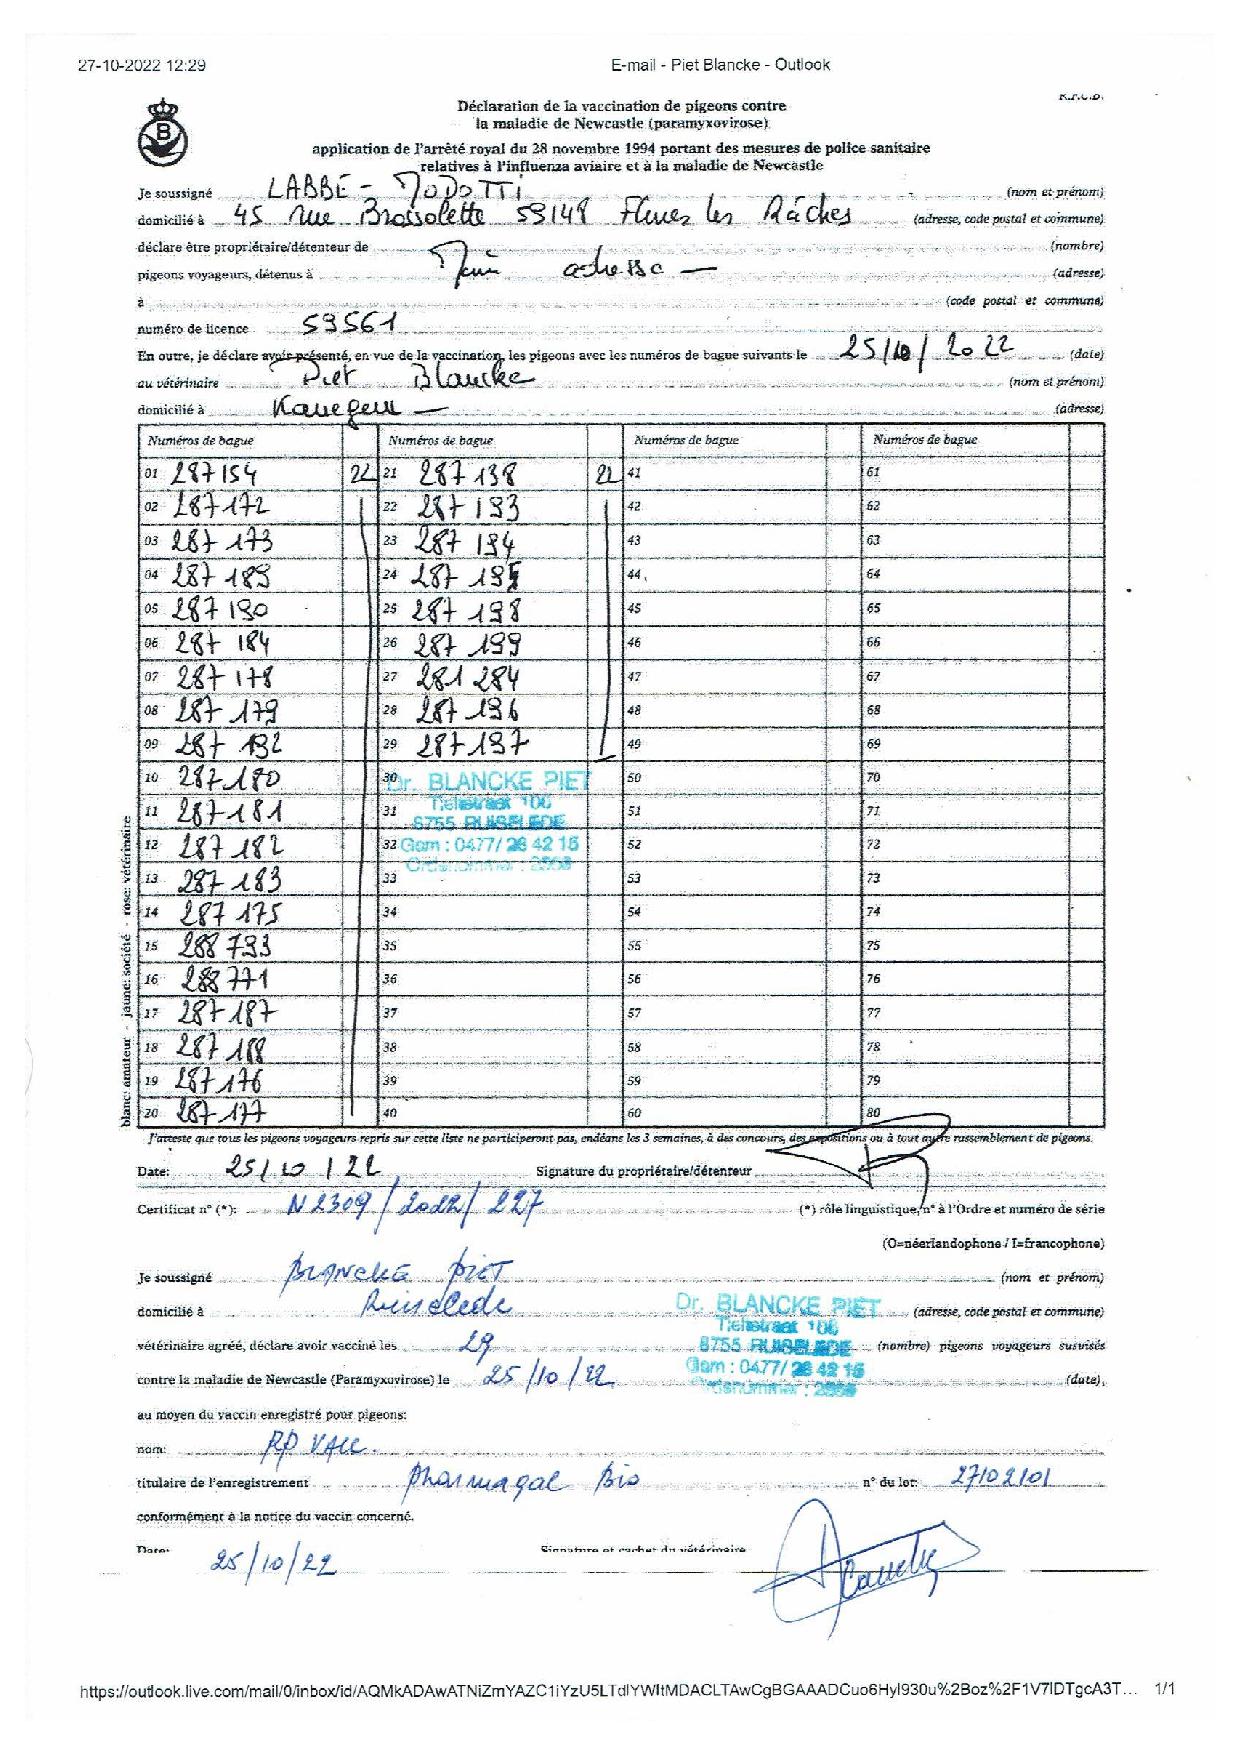 27-10-2022 12:29 E-mail - Piet Blancke - Outlook
B
Déclaration de la vaccination de pigeons contre
la maladie de Newcastle (paramyxovirose)
application de l'arrêté royal du 28 novembre 1994 portant des mesures de police sanitaire
relatives à l'influenza aviaire et à la maladie de Newcastle
Je soussigné LABBÉ - MODOTTI (nom et prénom)
domicilié à 45 rue Brossolette 59148 Flines les Râches (adresse, code postal et commune)
déclare être propriétaire/détenteur de (nombre)
pigeons voyageurs, détenus à adresse (adresse)
à (code postal et commune)
numéro de licence 59561
En outre, je déclare avoir présenté, en vue de la vaccination, les pigeons avec les numéros de bague suivants le 25/10/2022 (date)
au vétérinaire Piet Blancke (nom et prénom)
domicilié à Kanegem (adresse)
Numéros de bague Numéros de bague Numéros de bague Numéros de bague
01 287154 22 21 287 138 22 41 61
02 287172 22 287 193 42 62
03 287 173 23 287 194 43 63
04 287 189 24 287 195 44 64
05 287 190 25 287 198 45 65
06 287 184 26 287 199 46 66
07 287 178 27 281 284 47 67
08 287 179 28 287 196 48 68
09 287 192 29 287 197 49 69
10 287 180 30 50 70
11 287 181 31 51 71
12 287 182 32 52 72
13 287 183 33 53 73
14 287 175 34 54 74
15 288 793 35 55 75
16 288 771 36 56 76
17 287 187 37 57 77
18 287 188 38 58 78
19 287 176 39 59 79
20 287 177 40 60 80
Dr. BLANCKE PIET
Tieltstraat 106
8755 RUISELEDE
Gsm : 0477/ 28 42 15
Ordenummer :
blanc: amateur - jaune: société - rose: vétérinaire
J'atteste que tous les pigeons voyageurs repris sur cette liste ne participeront pas, endéans les 3 semaines, à des concours, des expositions ou à tout autre rassemblement de pigeons.
Date: 25/10/22 Signature du propriétaire/détenteur
Certificat n° (*): N 2309/2022/227 (*) rôle linguistique, n° à l'Ordre et numéro de série
(O=néerlandophone / I=francophone)
Je soussigné BLANCKE PIET (nom et prénom)
domicilié à Ruiselede (adresse, code postal et commune)
Dr. BLANCKE PIET
Tieltstraat 106
8755 RUISELEDE
Gsm : 0477/ 28 42 15
Ordenummer :
vétérinaire agréé, déclare avoir vacciné les 29 (nombre) pigeons voyageurs susvisés
contre la maladie de Newcastle (Paramyxovirose) le 25/10/22 (date),
au moyen du vaccin enregistré pour pigeons:
nom: RP VACC.
titulaire de l'enregistrement Pharmagal Bio n° du lot: 27102101
conformément à la notice du vaccin concerné.
Date: 25/10/22 Signature et cachet du vétérinaire
https://outlook.live.com/mail/0/inbox/id/AQMkADAwATNiZmYAZC1iYzU5LTdlYWItMDACLTAwCgBGAAADCuo6Hyl930u%2Boz%2F1V7IDTgcA3T... 1/1